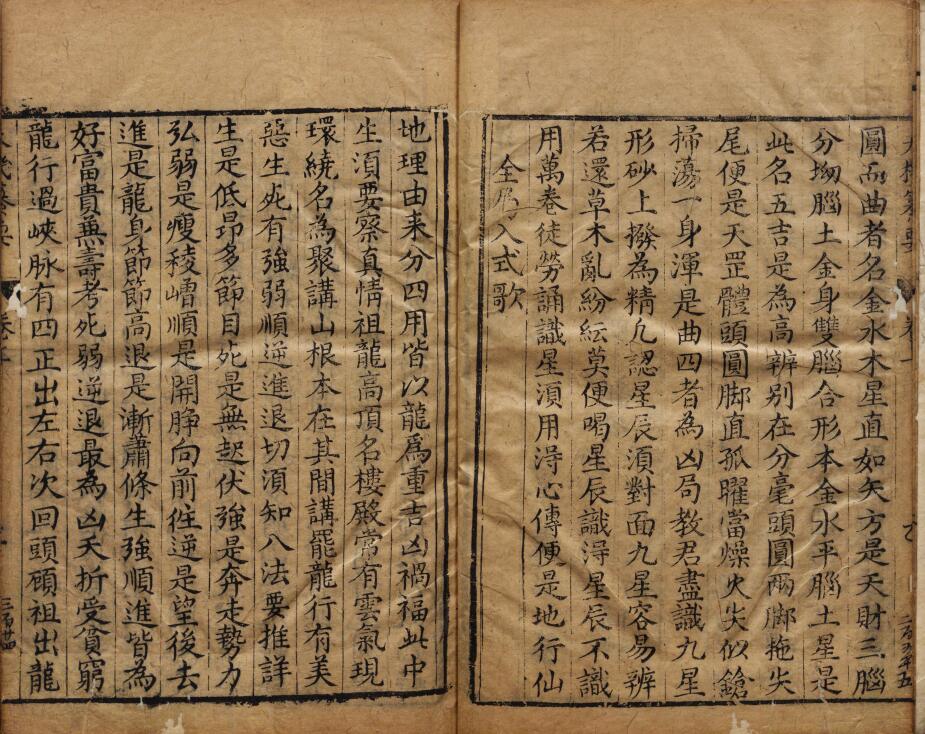 圓而曲者名金水木星直如矢方是天財三腦
分拗腦土金身雙腦合形本金水平腦土星是
此名五吉是為高辨别在分毫頭圓兩脚拖尖
尾便是天罡體頭圓脚直孤曜當燥火尖似鎗
掃蕩一身渾是曲四者為凶局教君盡識九星
形砂上撥為精凢認星辰湏對面九星容易辨
若還草木亂紛紜莫便喝星辰識淂星辰不識
用萬卷徒勞誦識星湏用淂心傳便是地行仙
全局入式歌
地理由来分四用皆以龍爲重吉凶禍福此中
生湏要察真情祖龍高頂名樓殿常有雲氣現
環繞名為聚講山根本在其間講罷龍行有美
惡生死有強弱順逆進退切湏知八法要推詳
生是低昻多節目死是無起伏強是奔走勢力
弘弱是瘦稜嶒順是開睁向前徃逆是望後去
進是龍身節節高退是漸蕭條生強順進皆為
好富貴兼壽考死弱逆退最為凶夭折受貧窮
龍行過峽脉有四正出左右次回頭頋祖出龍